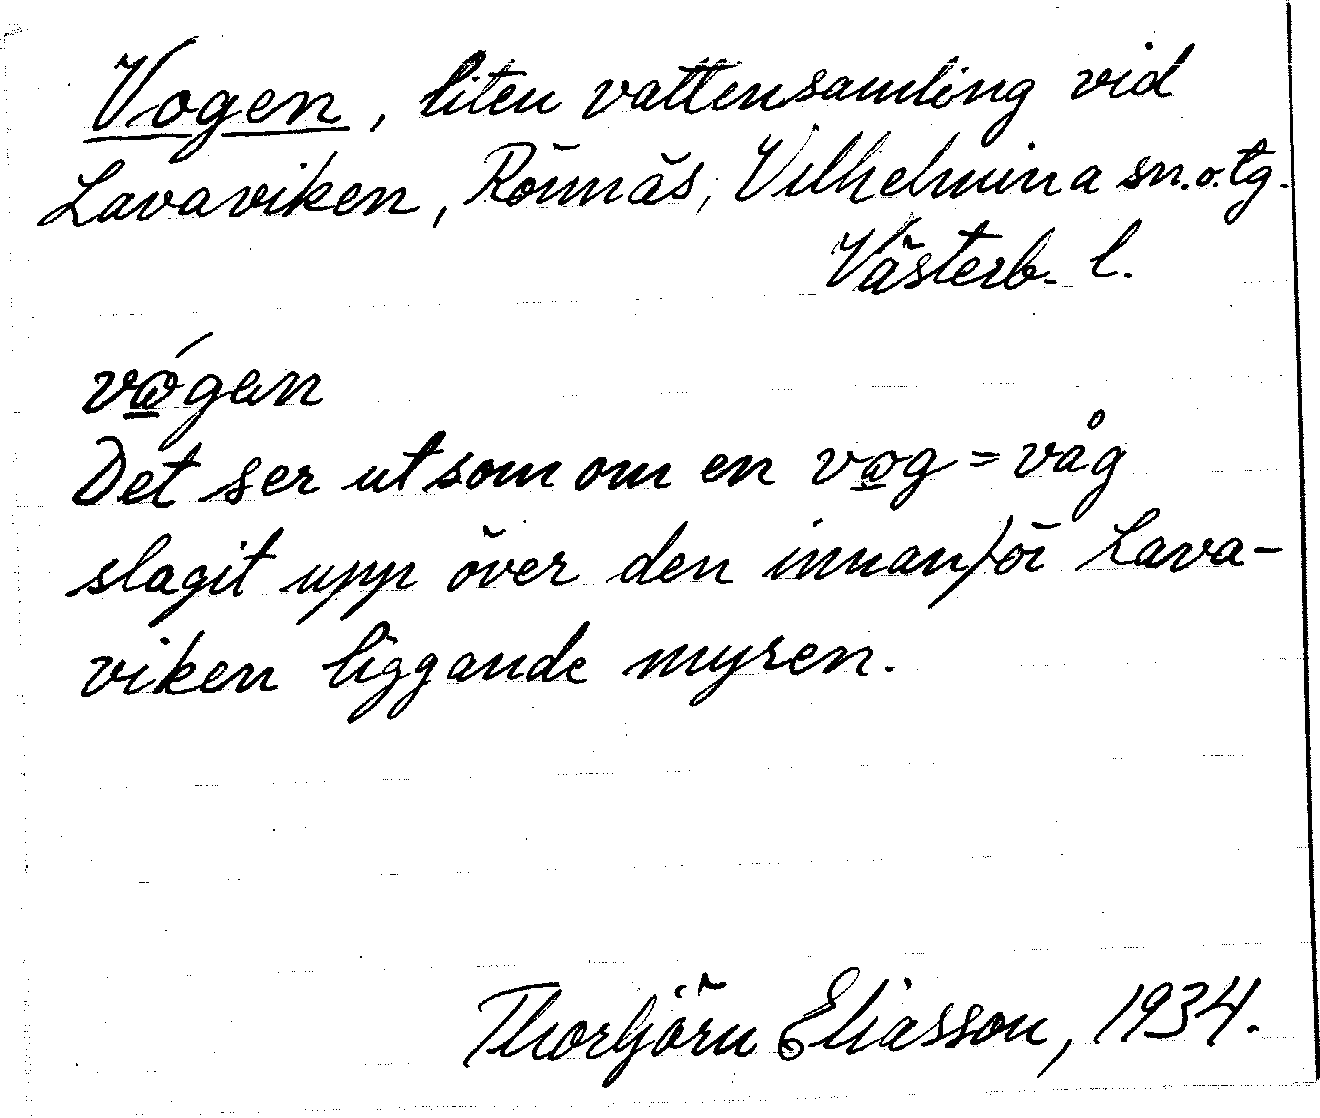 Vogen, liten vattensamling vid
Lavaviken, Rönnäs, Vilhelmina sn. o. tg.
Västerb. l.
vó̲gen
Det ser ut som om en vo̲g = våg
slagit upp över den innanför Lava-
viken liggande myren.
Thorbjörn Eliasson, 1934.